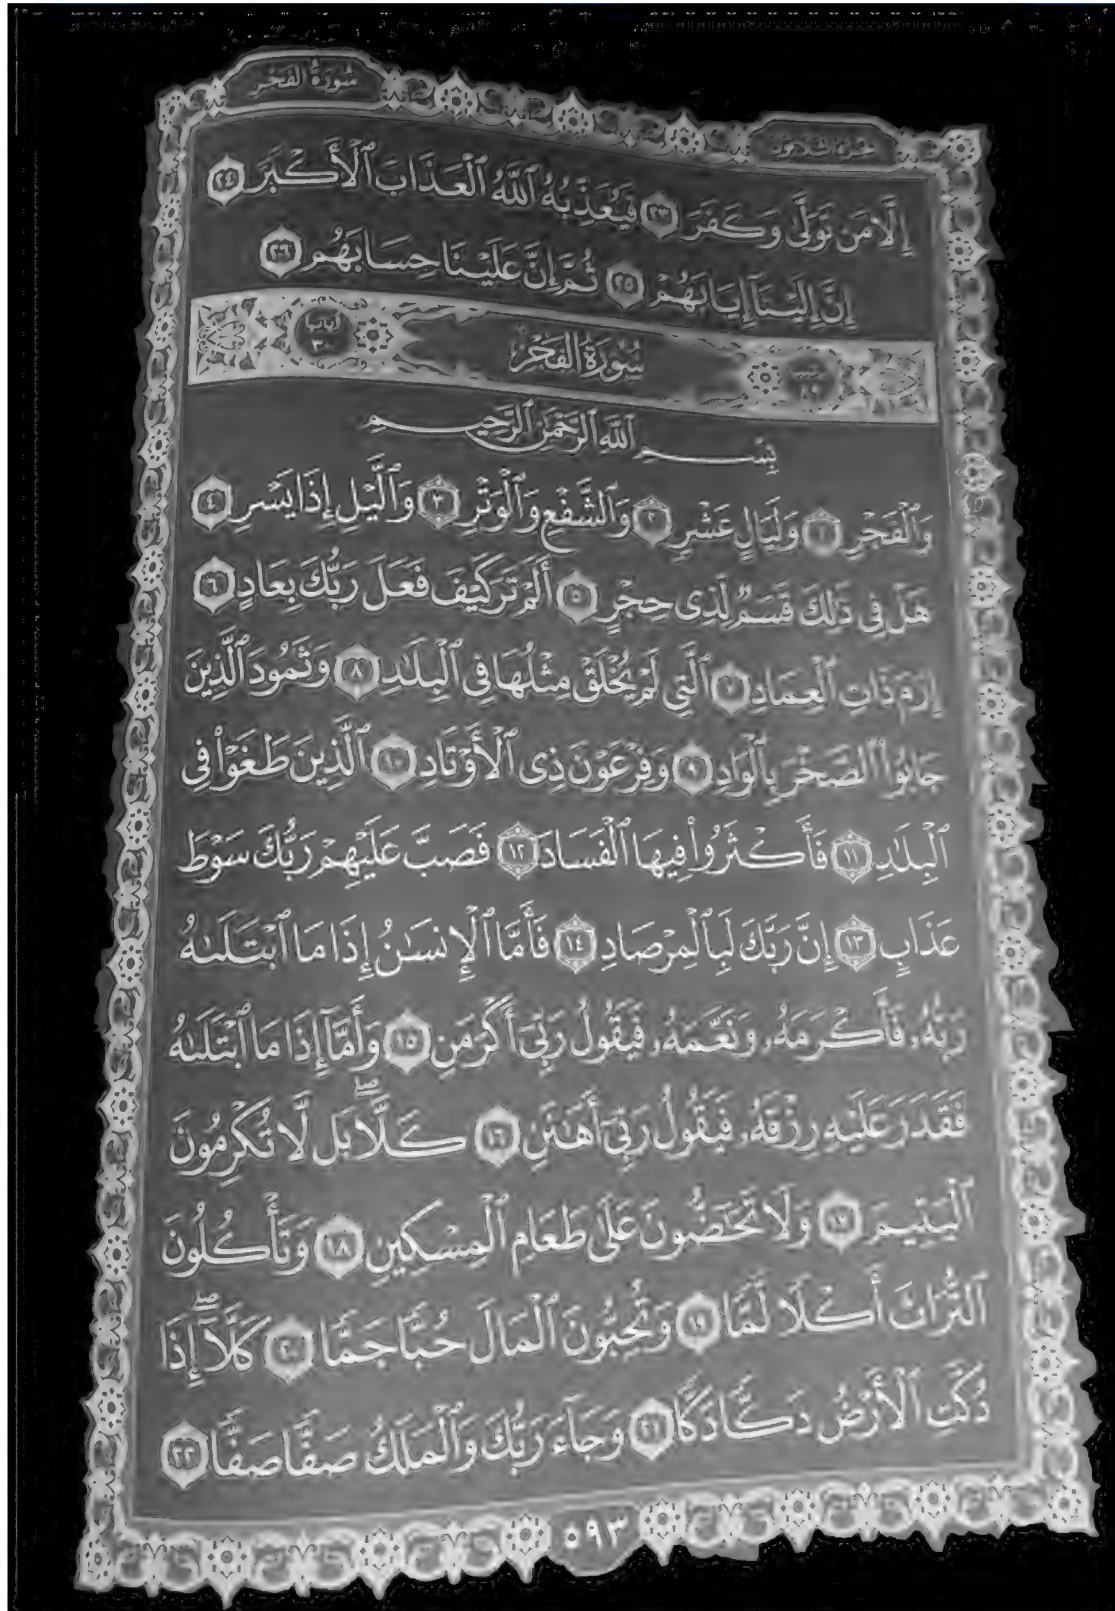 سُورَةُ الفَجْرِ
إِلَّا مَن تَوَلَّىٰ وَكَفَرَ ٢٣ فَيُعَذِّبُهُ ٱللَّهُ ٱلْعَذَابَ ٱلْأَكْبَرَ ٢٤
إِنَّ إِلَيْنَآ إِيَابَهُمْ ٢٥ ثُمَّ إِنَّ عَلَيْنَا حِسَابَهُم ٢٦
سُورَةُ الفَجْرِ آياتها ٣٠
بِسْمِ ٱللَّهِ ٱلرَّحْمَٰنِ ٱلرَّحِيمِ
وَٱلْفَجْرِ ١ وَلَيَالٍ عَشْرٍ ٢ وَٱلشَّفْعِ وَٱلْوَتْرِ ٣ وَٱلَّيْلِ إِذَا يَسْرِ ٤
هَلْ فِى ذَٰلِكَ قَسَمٌ لِّذِى حِجْرٍ ٥ أَلَمْ تَرَ كَيْفَ فَعَلَ رَبُّكَ بِعَادٍ ٦
إِرَمَ ذَاتِ ٱلْعِمَادِ ٧ ٱلَّتِى لَمْ يُخْلَقْ مِثْلُهَا فِى ٱلْبِلَٰدِ ٨ وَثَمُودَ ٱلَّذِينَ
جَابُوا۟ ٱلصَّخْرَ بِٱلْوَادِ ٩ وَفِرْعَوْنَ ذِى ٱلْأَوْتَادِ ١٠ ٱلَّذِينَ طَغَوْا۟ فِى
ٱلْبِلَٰدِ ١١ فَأَكْثَرُوا۟ فِيهَا ٱلْفَسَادَ ١٢ فَصَبَّ عَلَيْهِمْ رَبُّكَ سَوْطَ
عَذَابٍ ١٣ إِنَّ رَبَّكَ لَبِٱلْمِرْصَادِ ١٤ فَأَمَّا ٱلْإِنسَٰنُ إِذَا مَا ٱبْتَلَىٰهُ
رَبُّهُۥ فَأَكْرَمَهُۥ وَنَعَّمَهُۥ فَيَقُولُ رَبِّىٓ أَكْرَمَنِ ١٥ وَأَمَّآ إِذَا مَا ٱبْتَلَىٰهُ
فَقَدَرَ عَلَيْهِ رِزْقَهُۥ فَيَقُولُ رَبِّىٓ أَهَٰنَنِ ١٦ كَلَّاۖ بَل لَّا تُكْرِمُونَ
ٱلْيَتِيمَ ١٧ وَلَا تَحَٰٓضُّونَ عَلَىٰ طَعَامِ ٱلْمِسْكِينِ ١٨ وَتَأْكُلُونَ
ٱلتُّرَاثَ أَكْلًا لَّمًّا ١٩ وَتُحِبُّونَ ٱلْمَالَ حُبًّا جَمًّا ٢٠ كَلَّآۖ إِذَا
دُكَّتِ ٱلْأَرْضُ دَكًّا دَكًّا ٢١ وَجَآءَ رَبُّكَ وَٱلْمَلَكُ صَفًّا صَفًّا ٢٢
٥٩٣